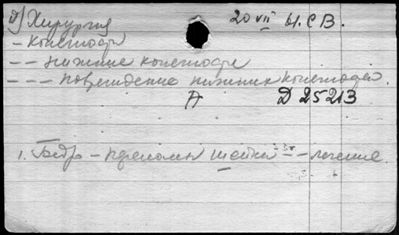 д) Хирургия 20 VII 61. СВ.
- конечности
- - нижние конечности
- - - повреждение нижних конечностей.
А Д 25213
1. Бедро - переломы шейки - - лечение.